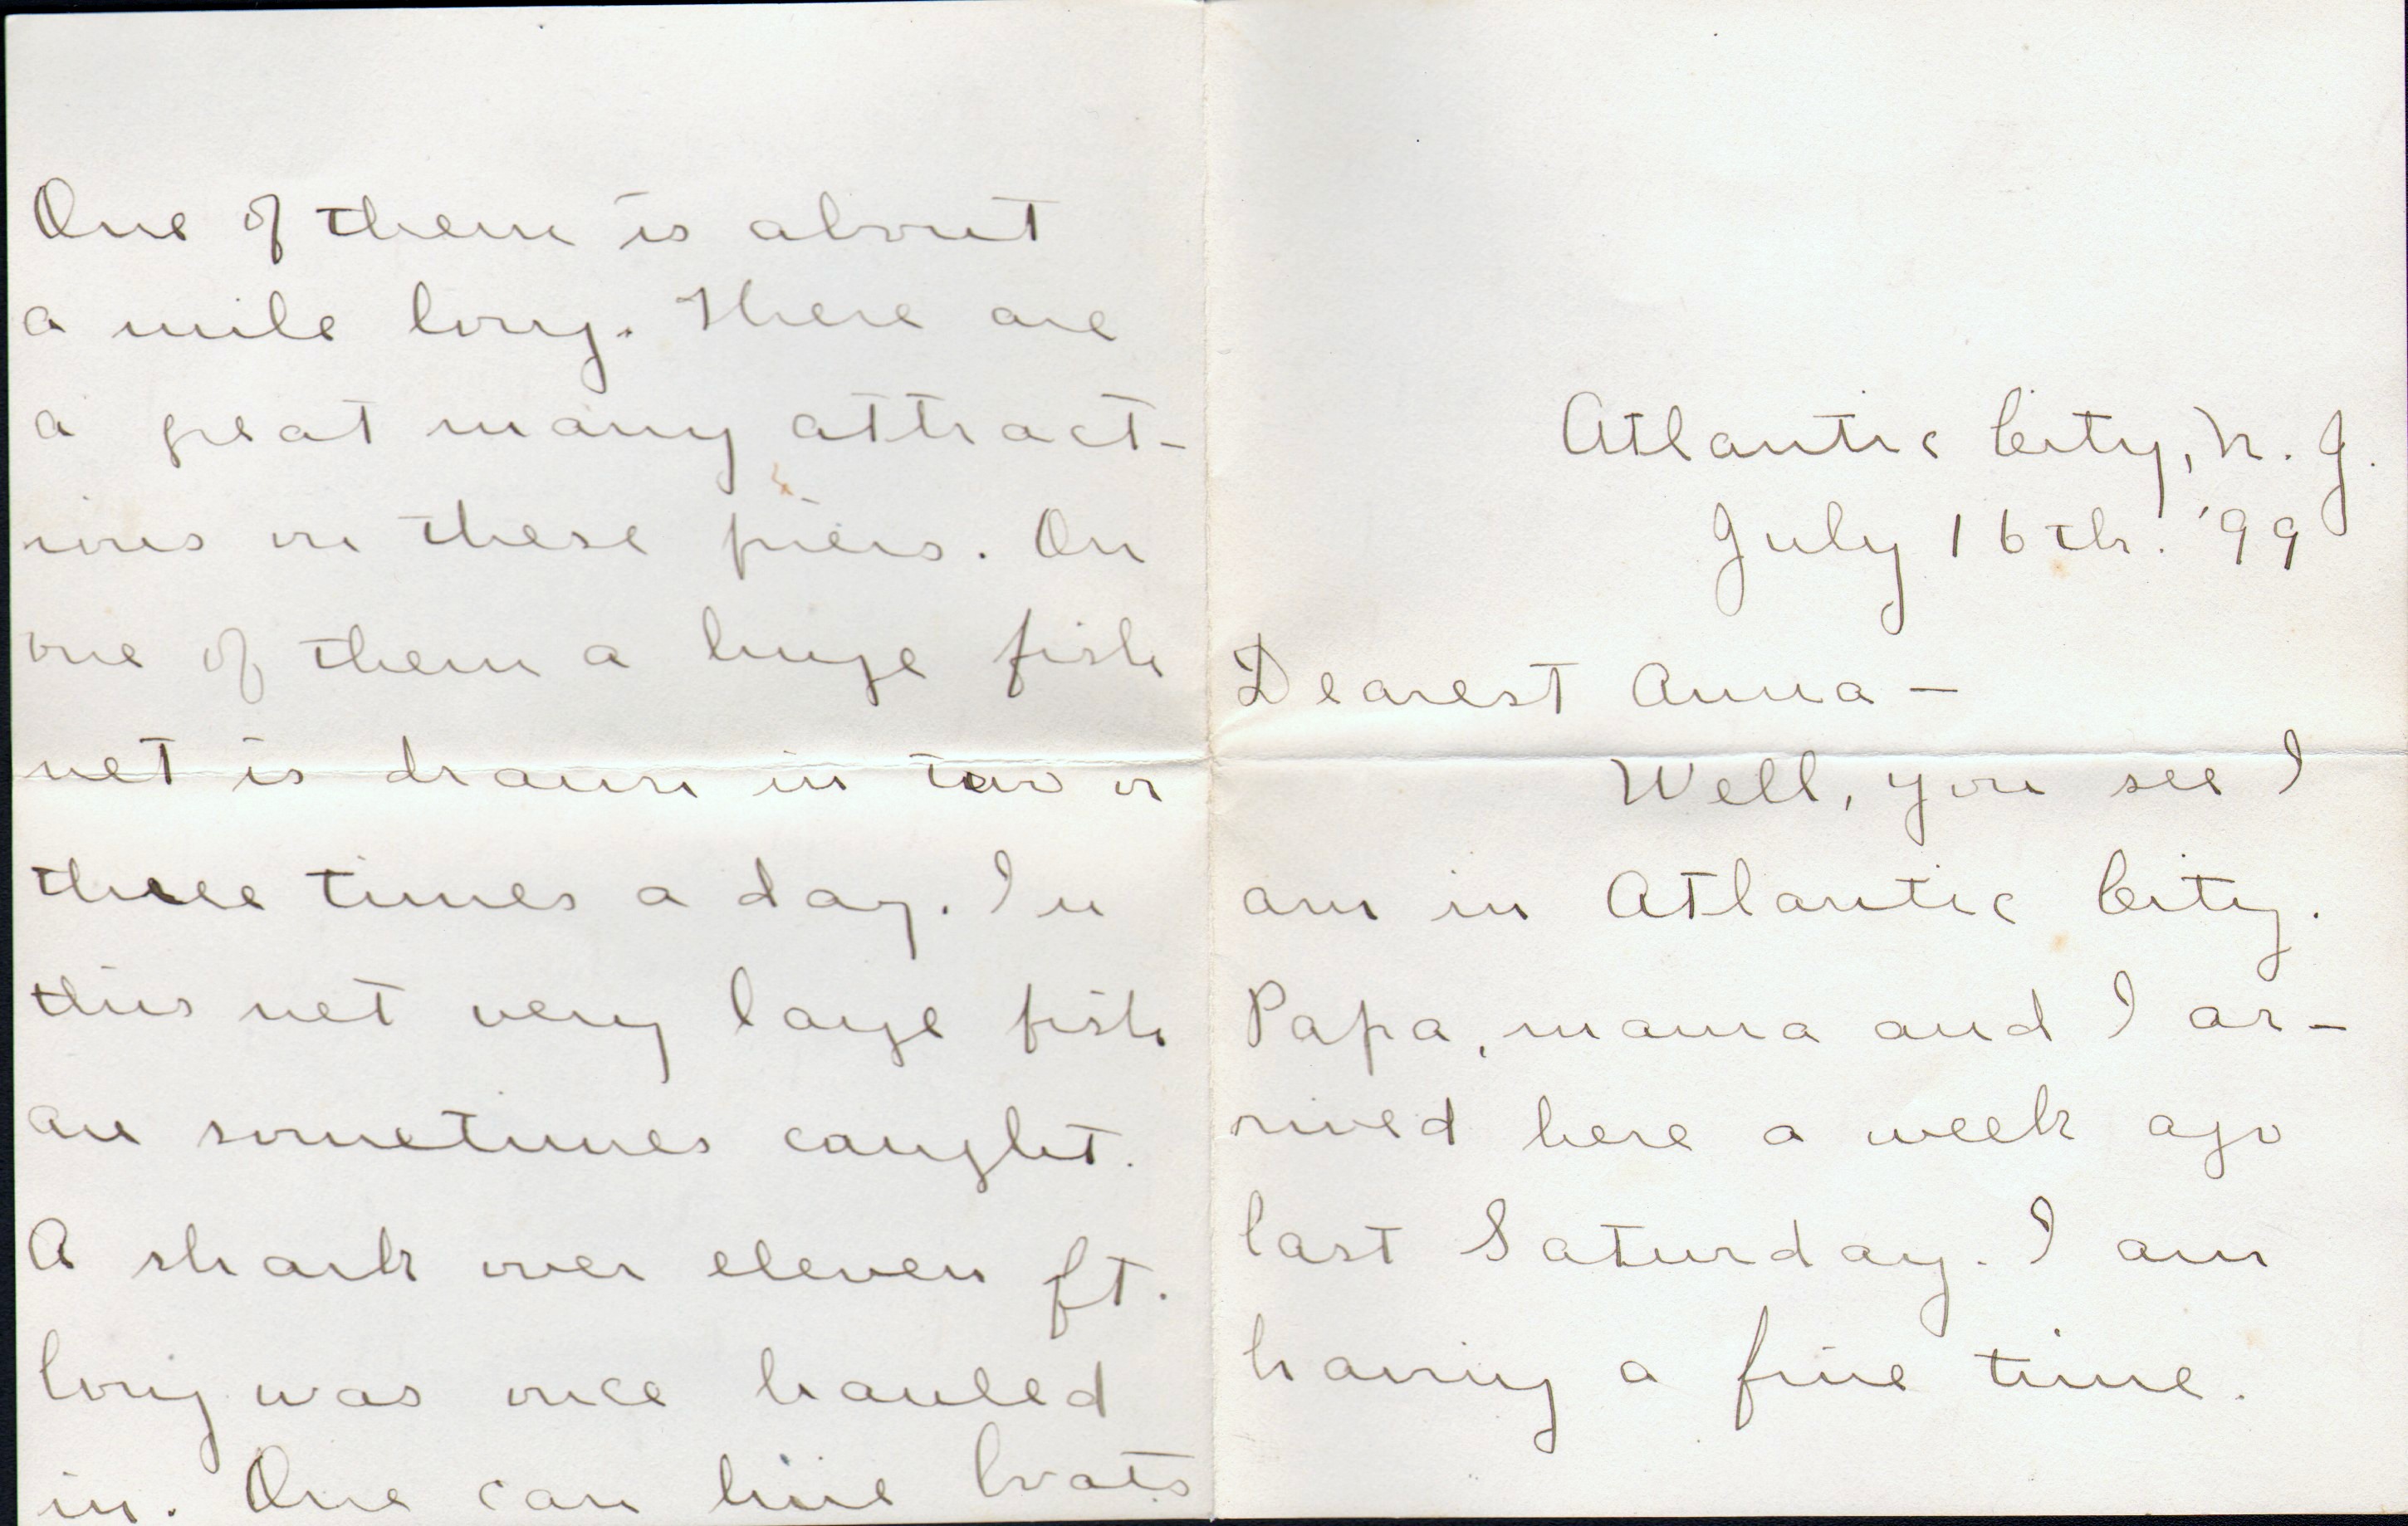 Atlantic City, N. J.
July 16th. '99
Dearest Anna —
Well, you see I
am in Atlantic City.
Papa, mama and I ar-
rived here a week ago
last Saturday. I am
having a fine time.
One of them is about
a mile long. There are
a great many attract-
ions on these piers. On
one of them a huge fish
net is drawn in two or
three times a day. In
this net very large fish
are sometimes caught.
A shark over eleven ft.
long was once hauled
in. One can hire boats